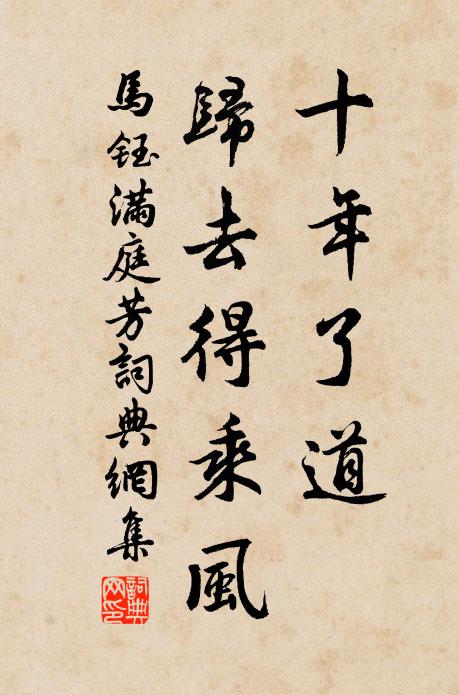 十年了道
歸去得乘風
馬鈺滿庭芳詞典網集
詞典
网印